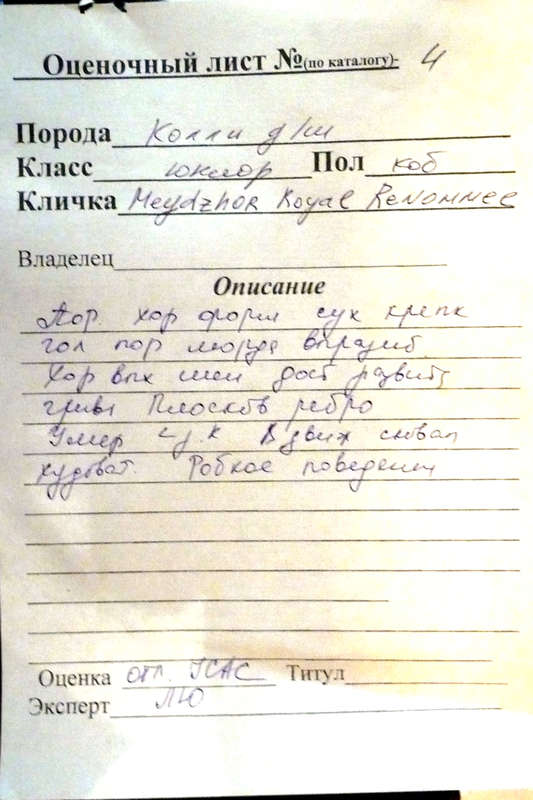 Оценочный лист №(по каталогу)- 4
Порода Колли д/ш
Класс юниор Пол коб
Кличка Meydzhor Royal Renommee
Владелец
Описание
Пор. хор форм сук крепк
гол пор морда выразит
Хор вых шеи дост развит
грива Плосков ребро
Умер В движ
худоват. Робкое поведение
Оценка отл. JCAC Титул
Эксперт